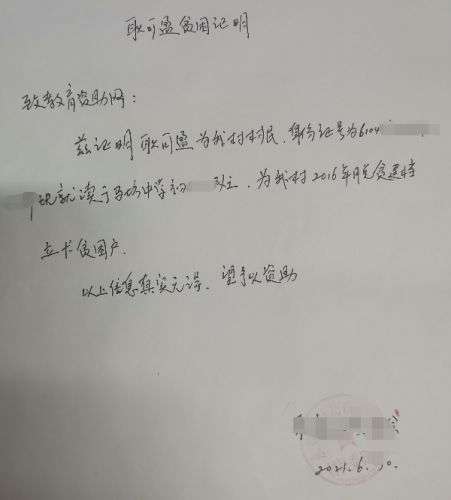 耿可盈贫困证明
致教育资助网：
兹证明 耿可盈 为我村村民，身份证号为6104
现就读于马坊中学初 为我村2016年 贫建档
立卡贫困户.
以上信息真实无误，望予以资助
2021.6.10.